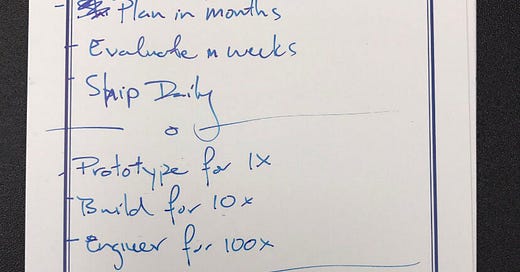 - Plan in months
- Evaluate in weeks
- Ship Daily
- Prototype for 1x
- Build for 10x
- Engineer for 100x